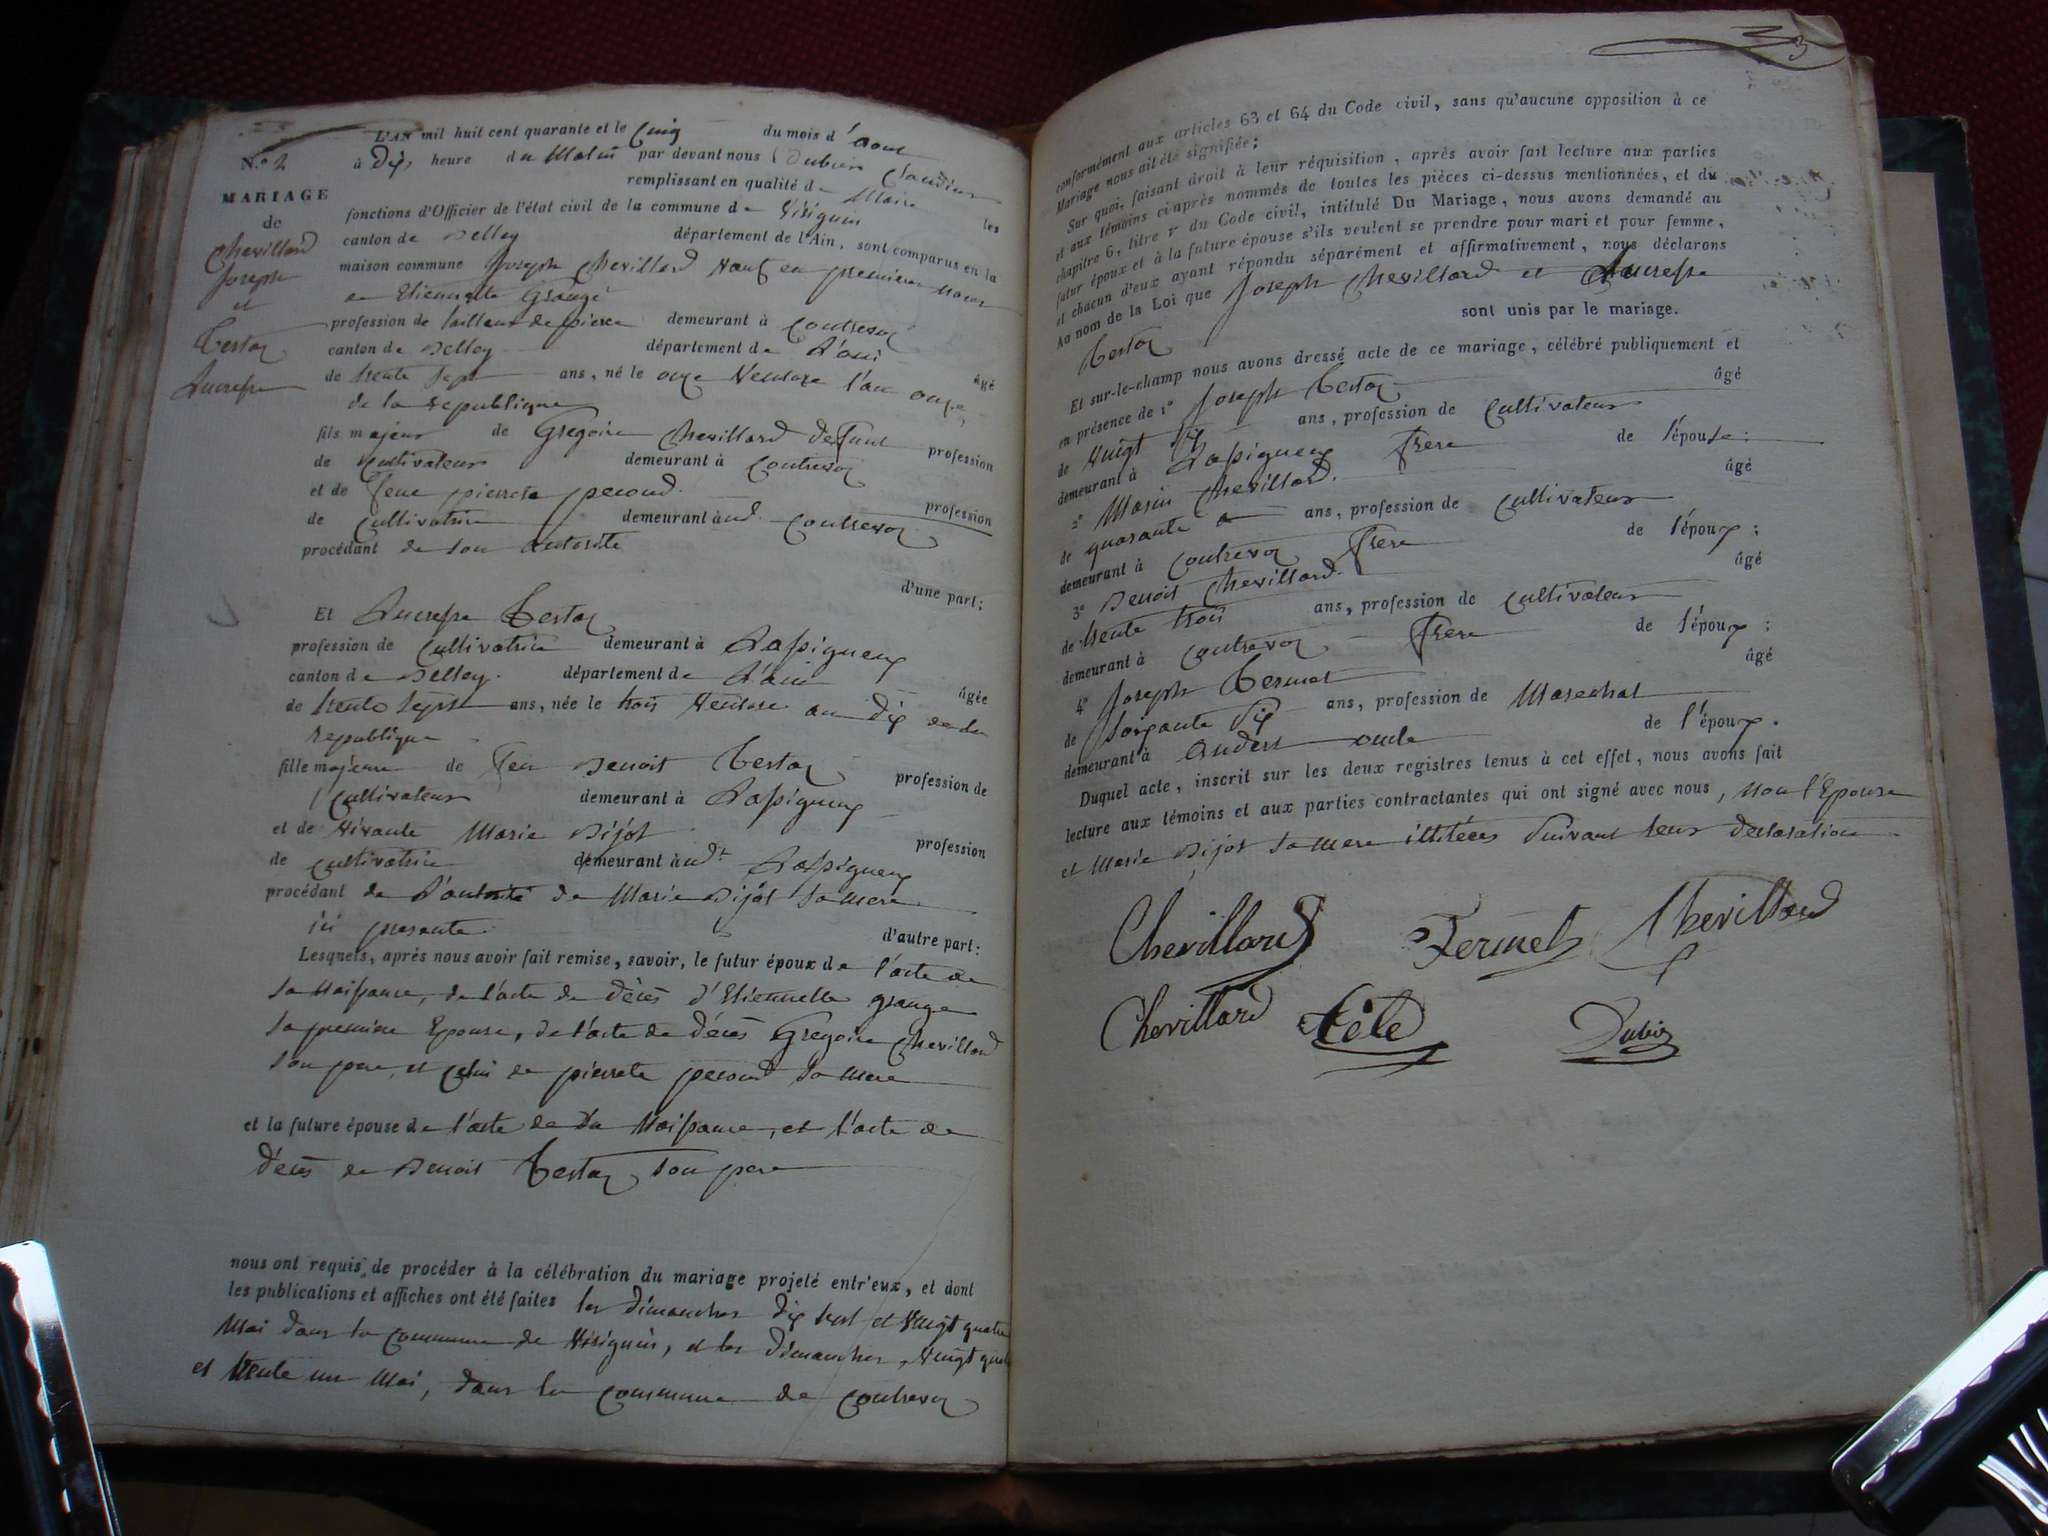 L'AN mil huit cent quarante et le cinq du mois d'aout
N.º 2
à dix heure du Matin par devant nous Dubien
remplissant en qualité de Maire les
MARIAGE
fonctions d'Officier de l'état civil de la commune de Virignin
de
canton de Belley département de l'Ain, sont comparus en la
Chevillard
maison commune Joseph Chevillard Veuf en premiere noces
Joseph
de Etiennette Grange
et
profession de tailleur de pierre demeurant à Contrevoz
Testaz
canton de Belley département de L'ain âgé
Lucresse
de trente sept ans, né le onze Ventose l'an onze
de la republique
fils majeur de Gregoire Chevillard defunt profession
de Cultivateur demeurant à Contrevoz
et de feue pierrete perond profession
de Cultivatrice demeurant aud. Contrevoz
procédant de son autorité
d'une part;
Et Lucresse Testaz
profession de Cultivatrice demeurant à Lassignieux
canton de Belley département de L'ain âgée
de trente sept ans, née le trois Ventose an dix de la
republique
fille majeure de feu Benoit Testaz profession de
Cultivateur demeurant à Lassignieux
et de Vivante Marie Bijot profession
de cultivatrice demeurant aud.t Lassignieux
procédant de L'autorité de Marie Bijot sa mere
ici presente d'autre part:
Lesquels, après nous avoir fait remise, savoir, le futur époux de l'acte de
sa Naissance, de l'acte de décès d'Etiennette grange
sa premiere Epouse, de l'acte de décès Gregoire Chevillard
son pere, et celui de pierrete perond sa mere
et la future épouse de l'acte de sa Naissance, et l'acte de
décès de Benoit Testaz son pere
nous ont requis de procéder à la célébration du mariage projeté entr'eux, et dont
les publications et affiches ont été faites les dimanches dix sept et Vingt quatre
Mai dans la commune de Virignin, et les dimanches Vingt quatre
et trente un Mai, dans la commune de Contrevoz
3
conformément aux articles 63 et 64 du Code civil, sans qu'aucune opposition à ce
Mariage nous ait été signifiée;
Sur quoi, faisant droit à leur réquisition, après avoir fait lecture aux parties
et aux témoins ci-après nommés de toutes les pièces ci-dessus mentionnées, et du
chapitre 6, titre v du Code civil, intitulé Du Mariage, nous avons demandé au
futur époux et à la future épouse s'ils veulent se prendre pour mari et pour femme,
et chacun d'eux ayant répondu séparément et affirmativement, nous déclarons
Au nom de la Loi que Joseph Chevillard et Lucresse
Testaz sont unis par le mariage.
Et sur-le-champ nous avons dressé acte de ce mariage, célébré publiquement et
en présence de 1º Joseph Testaz âgé
de Vingt ans, profession de Cultivateur
demeurant à Lassignieux frere de l'épouse;
2º Marin Chevillard âgé
de quarante ans, profession de Cultivateur
demeurant à Contrevoz frere de l'époux;
3º Benoit Chevillard âgé
de trente trois ans, profession de Cultivateur
demeurant à Contrevoz frere de l'époux;
4º Joseph Termet âgé
de soixante six ans, profession de Marechal
demeurant à Andert oncle de l'époux.
Duquel acte, inscrit sur les deux registres tenus à cet effet, nous avons fait
lecture aux témoins et aux parties contractantes qui ont signé avec nous, Non l'Epouse
et Marie Bijot sa mere illitérés suivant leur declaration
Chevillard Termet Chevillard
Chevillard tête Dubien